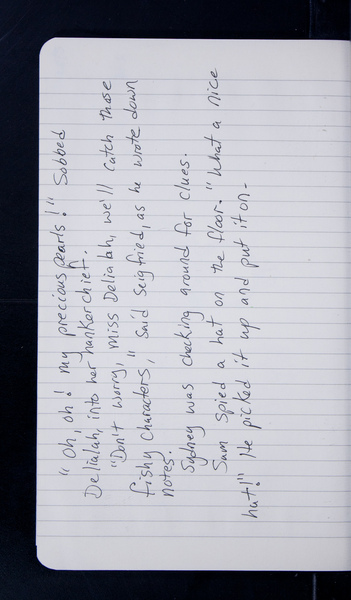 "Oh, oh! my precious pearls!" Sobbed
Delialah, into her hankerchief.
"Don't worry, miss Delialah, we'll catch those
fishy characters," said Seigfried, as he wrote down
notes.
Sydney was checking around for clues.
Sam spied a hat on the floor. "What a nice
hat!" He picked it up and put it on.